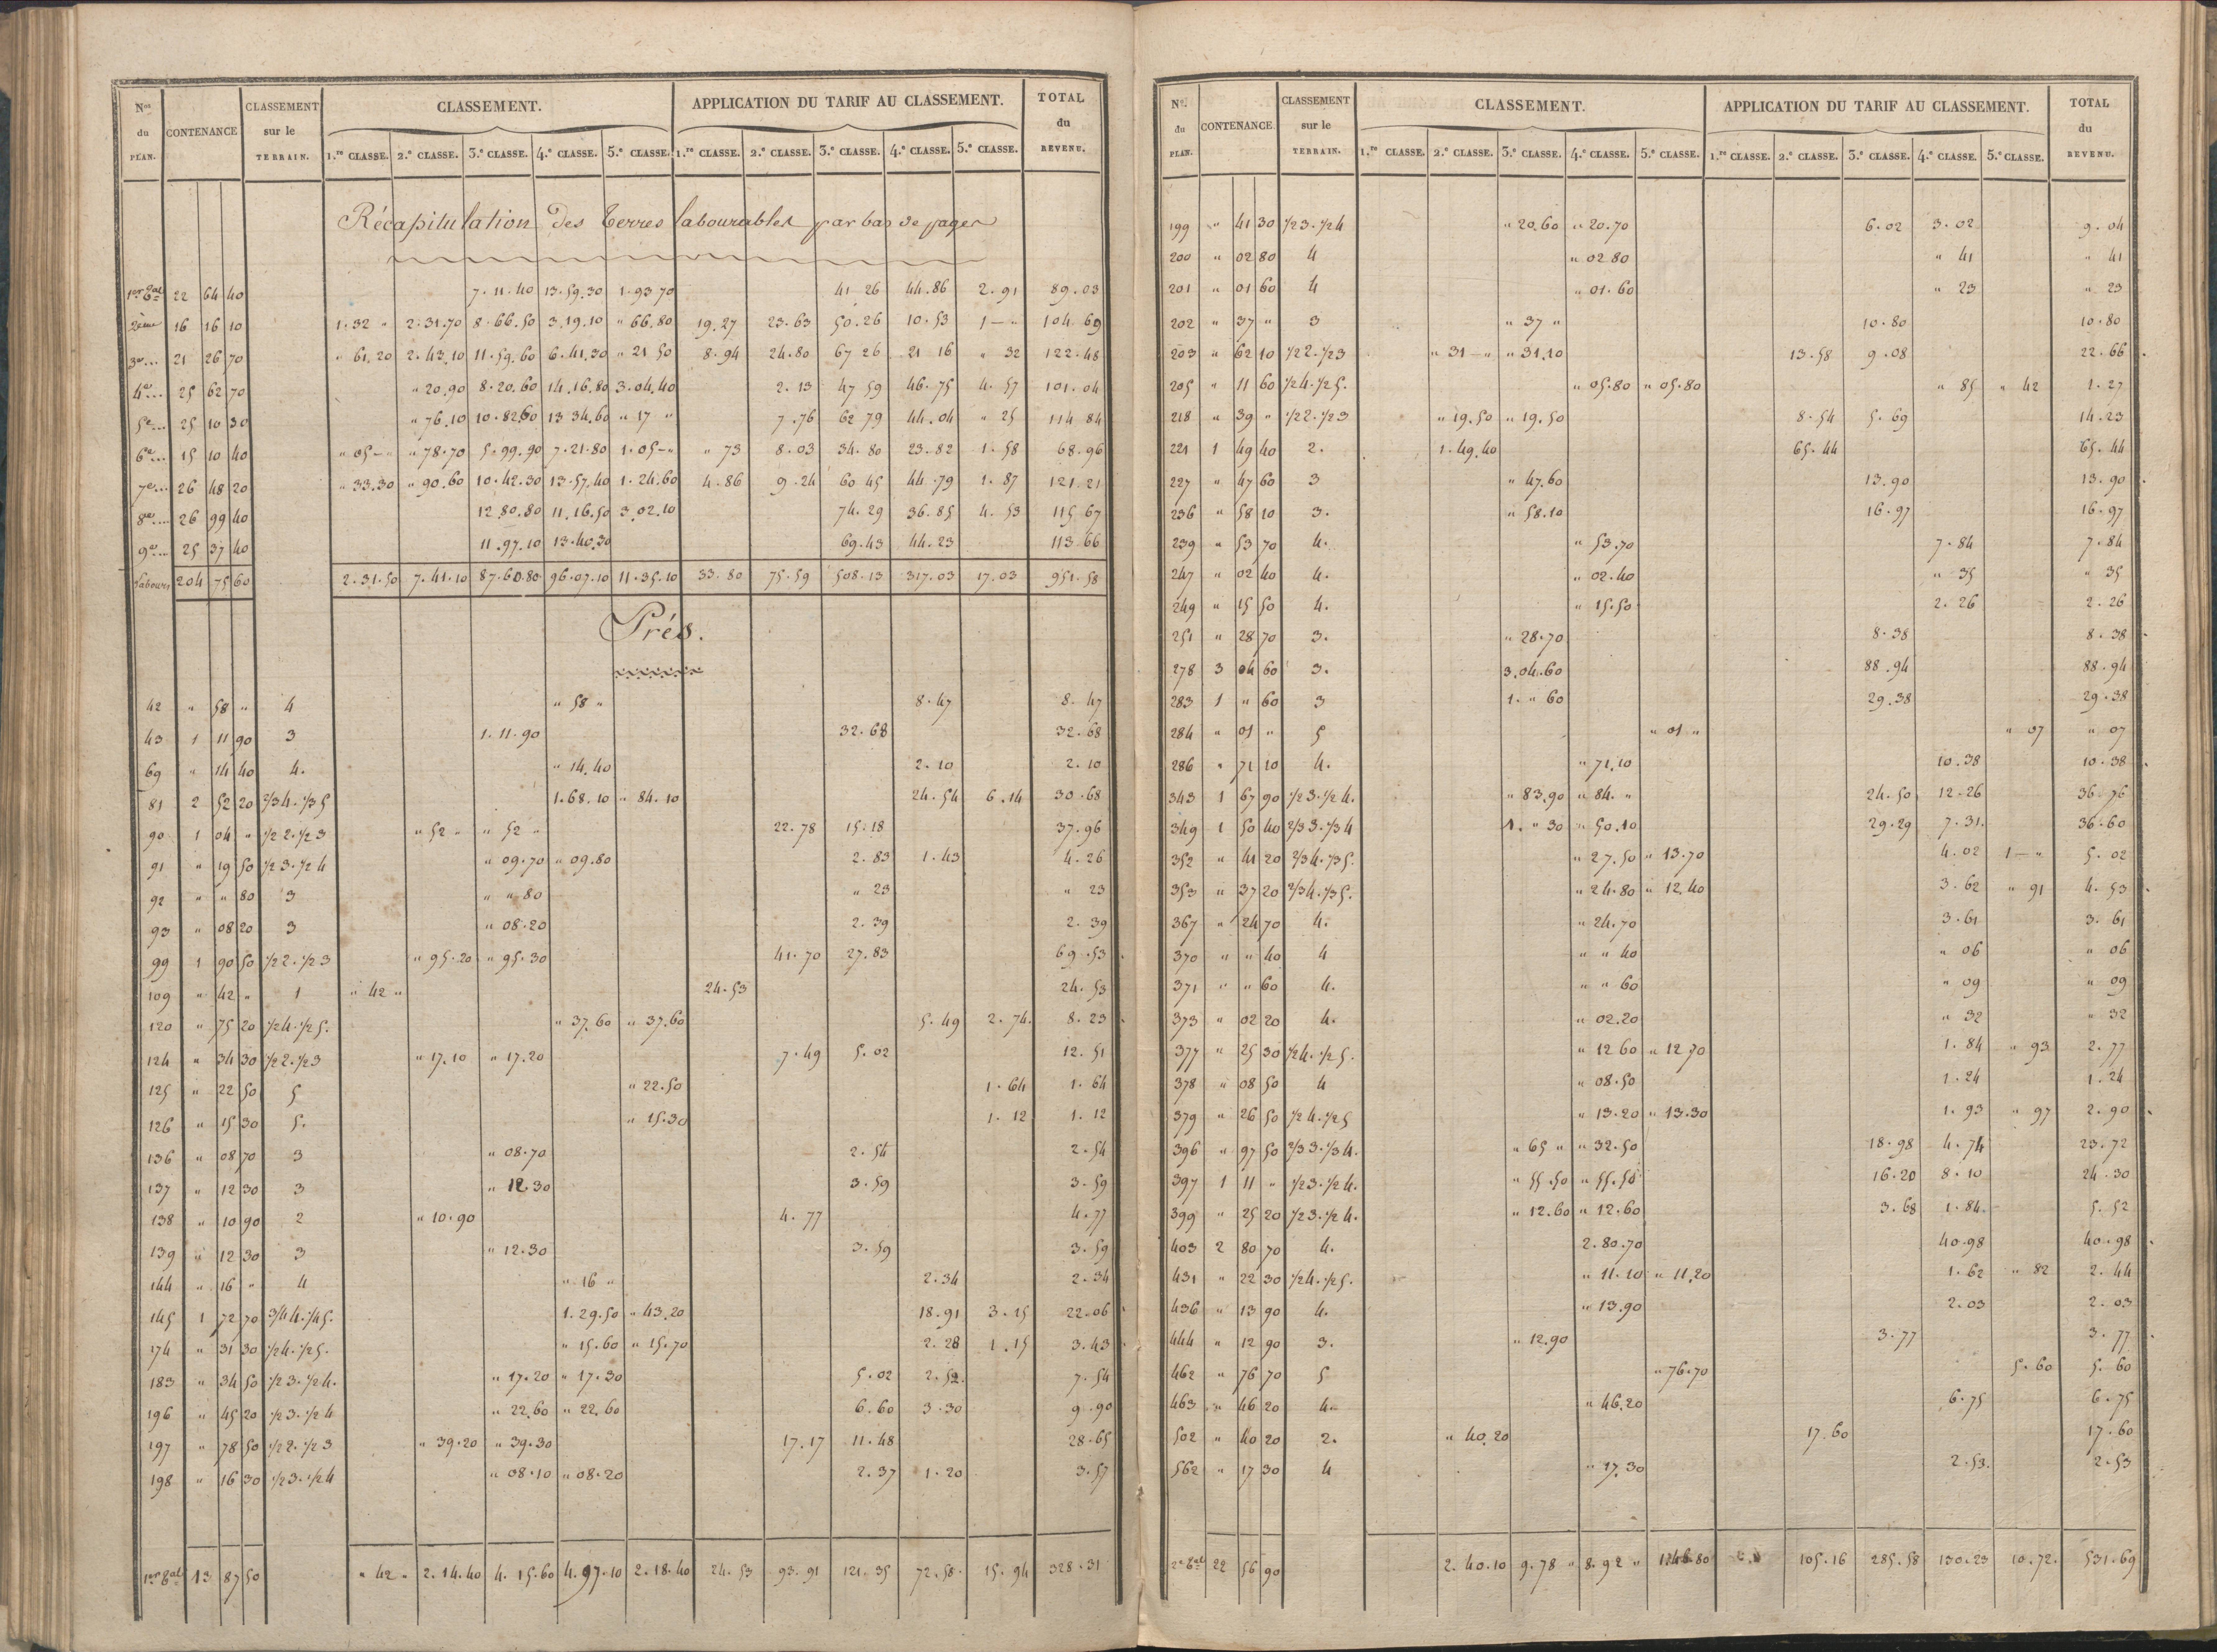 Nos du PLAN. CONTENANCE CLASSEMENT sur le TERRAIN. CLASSEMENT. APPLICATION DU TARIF AU CLASSEMENT. TOTAL du REVENU.
1.re CLASSE. 2.e CLASSE. 3.e CLASSE. 4.e CLASSE. 5.e CLASSE. 1.re CLASSE. 2.e CLASSE. 3.e CLASSE. 4.e CLASSE. 5.e CLASSE.
Récapitulation des Terres labourables par bas de pages
1er Tal 22 64 40 7.11.40 13.59.30 1.93 70 41 26 44.86 2.91 89.03
2ème 16 16 10 1.32 " 2.31.70 8.66.50 3.19.10 " 66.80 19.27 23.63 50.26 10.53 1 — " 104.69
3e... 21 26 70 " 61.20 2.43.10 11.59.60 6.41.30 " 21 50 8.94 24.80 67 26 21 16 " 32 122.48
4e... 25 62 70 " 20.90 8.20.60 14.16.80 3.04.40 2.13 47 59 46.75 4.57 101.04
5e... 25 10 30 " 76.10 10.82.60 13 34.60 " 17 " 7.76 62 79 44.04 " 25 114 84
6e... 15 10 40 " 05 — " " 78.70 5.99.90 7.21.80 1.05 — " " 73 8.03 34.80 23.82 1.58 68.96
7e... 26 48 20 " 33.30 " 90.60 10.42.30 13.57.40 1.24.60 4.86 9.24 60 45 44.79 1.87 121.21
8e... 26 99 40 12 80.80 11.16.50 3.02.10 74.29 36.85 4.53 115 67
9e... 25 37 40 11.97.10 13.40.30 69.43 44.23 113 66
Labours 204 75 60 2.31.50 7.41.10 87.60.80 96.07.10 11.35.10 33.80 75.59 508.13 317.03 17.03 951.58
Prés.
42 " 58 " 4 " 58 " 8.47 8.47
43 1 11 90 3 1.11.90 32.68 32.68
69 " 14 40 4. " 14.40 2.10 2.10
81 2 52 20 2/3 4. 1/3 5 1.68.10 " 84.10 24.54 6.14 30.68
90 1 04 " 1/2 2. 1/2 3 " 52 " " 52 " 22.78 15.18 37.96
91 " 19 50 1/2 3. 1/2 4 " 09.70 " 09.80 2.83 1.43 4.26
92 " " 80 3 " " 80 " 23 " 23
93 " 08 20 3 " 08.20 2.39 2.39
99 1 90 50 1/2 2. 1/2 3 " 95.20 " 95.30 41.70 27.83 69.53
109 " 42 " 1 " 42 " 24.53 24.53
120 " 75 20 1/2 4. 1/2 5. " 37.60 " 37.60 5.49 2.74. 8.23
124 " 34 30 1/2 2. 1/2 3 " 17.10 " 17.20 7.49 5.02 12.51
125 " 22 50 5 " 22.50 1.64 1.64
126 " 15 30 5. " 15.30 1.12 1.12
136 " 08 70 3 " 08.70 2.54 2.54
137 " 12 30 3 " 12.30 3.59 3.59
138 " 10 90 2 " 10.90 4.77 4.77
139 " 12 30 3 " 12.30 3.59 3.59
144 " 16 " 4 " 16 " 2.34 2.34
145 1 72 70 3/4 4. 1/4 5. 1.29.50 " 43.20 18.91 3.15 22.06
174 " 31 30 1/2 4. 1/2 5. " 15.60 " 15.70 2.28 1.15 3.43
183 " 34 50 1/2 3. 1/2 4. " 17.20 " 17.30 5.02 2.52. 7.54
196 " 45 20 1/2 3. 1/2 4 " 22.60 " 22.60 6.60 3.30 9.90
197 " 78 50 1/2 2. 1/2 3 " 39.20 " 39.30 17.17 11.48 28.65
198 " 16 30 1/2 3. 1/2 4 " 08.10 " 08.20 2.37 1.20 3.57
1er Tal 13 87 50 " 42 " 2.14.40 4.15.60 4.97.10 2.18.40 24.53 93.91 121.35 72.58. 15.94 328.31
Nos du PLAN. CONTENANCE CLASSEMENT sur le TERRAIN. CLASSEMENT. APPLICATION DU TARIF AU CLASSEMENT. TOTAL du REVENU.
1.re CLASSE. 2.e CLASSE. 3.e CLASSE. 4.e CLASSE. 5.e CLASSE. 1.re CLASSE. 2.e CLASSE. 3.e CLASSE. 4.e CLASSE. 5.e CLASSE.
199 " 41 30 1/2 3. 1/2 4 " 20.60 " 20.70 6.02 3.02 9.04
200 " 02 80 4 " 02 80 " 41 " 41
201 " 01 60 4 " 01.60 " 23 " 23
202 " 37 " 3 " 37 " 10.80 10.80
203 " 62 10 1/2 2. 1/2 3 " 31 — " " 31.10 13.58 9.08 22.66
205 " 11 60 1/2 4. 1/2 5. " 05.80 " 05.80 " 85 " 42 1.27
218 " 39 " 1/2 2. 1/2 3 " 19.50 " 19.50 8.54 5.69 14.23
221 1 49 40 2. 1.49.40 65.44 65.44
227 " 47 60 3 " 47.60 13.90 13.90
236 " 58 10 3. " 58.10 16.97 16.97
239 " 53 70 4. " 53.70 7.84 7.84
247 " 02 40 4. " 02.40 " 35 " 35
249 " 15 50 4. " 15.50 2.26 2.26
251 " 28 70 3. " 28.70 8.38 8.38
278 3 04 60 3. 3.04.60 88.94 88.94
283 1 " 60 3 1. " 60 29.38 29.38
284 " 01 " 5 " 01 " " 07 " 07
286 " 71 10 4. " 71.10 10.38 10.38
343 1 67 90 1/2 3. 1/2 4. " 83.90 " 84. " 24.50 12.26 36.76
349 1 50 40 2/3 3. 1/3 4 1. " 30 " 50.10 29.29 7.31. 36.60
352 " 41 20 2/3 4. 1/3 5. " 27.50 " 13.70 4.02 1 — " 5.02
353 " 37 20 2/3 4. 1/3 5. " 24.80 " 12.40 3.62 " 91 4.53
367 " 24 70 4. " 24.70 3.61 3.61
370 " " 40 4 " " 40 " 06 " 06
371 " " 60 4. " " 60 " 09 " 09
373 " 02 20 4. " 02.20 " 32 " 32
377 " 25 30 1/2 4. 1/2 5. " 12 60 " 12 70 1.84 " 93 2.77
378 " 08 50 4 " 08.50 1.24 1.24
379 " 26 50 1/2 4. 1/2 5 " 13.20 " 13.30 1.93 " 97 2.90
396 " 97 50 2/3 3. 1/3 4. " 65 " " 32.50 18.98 4.74 23.72
397 1 11 " 1/2 3. 1/2 4. " 55.50 " 55.50 16.20 8.10 24.30
399 " 25 20 1/2 3. 1/2 4. " 12.60 " 12.60 3.68 1.84. 5.52
403 2 80 70 4. 2.80.70 40.98 40.98
431 " 22 30 1/2 4. 1/2 5. " 11.10 " 11.20 1.62 " 82 2.44
436 " 13 90 4. " 13.90 2.03 2.03
444 " 12 90 3. " 12.90 3.77 3.77
462 " 76 70 5 " 76.70 5.60 5.60
463 " 46 20 4. " 46.20 6.75 6.75
502 " 40 20 2. " 40.20 17.60 17.60
562 " 17 30 4 " 17.30 2.53. 2.53
2e Tal 22 56 90 2.40.10 9.78 " 8.92 " 105.16 285.58 130.23 10.72. 531.69